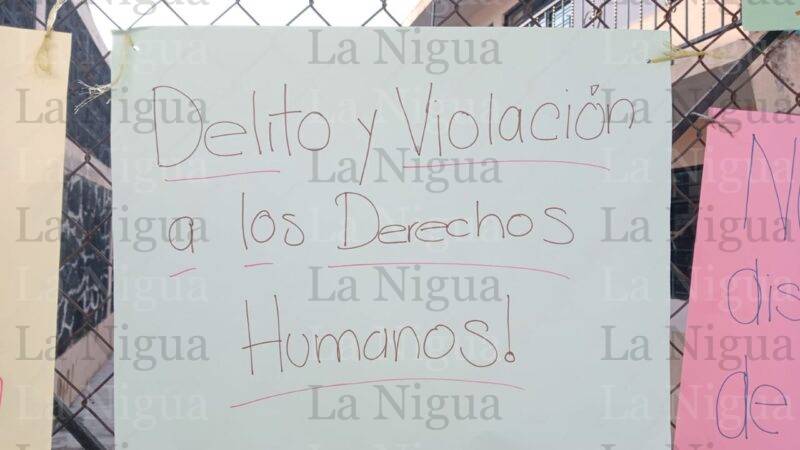 Delito y Violación
a los Derechos
Humanos!
N
dis
de
La Nigua